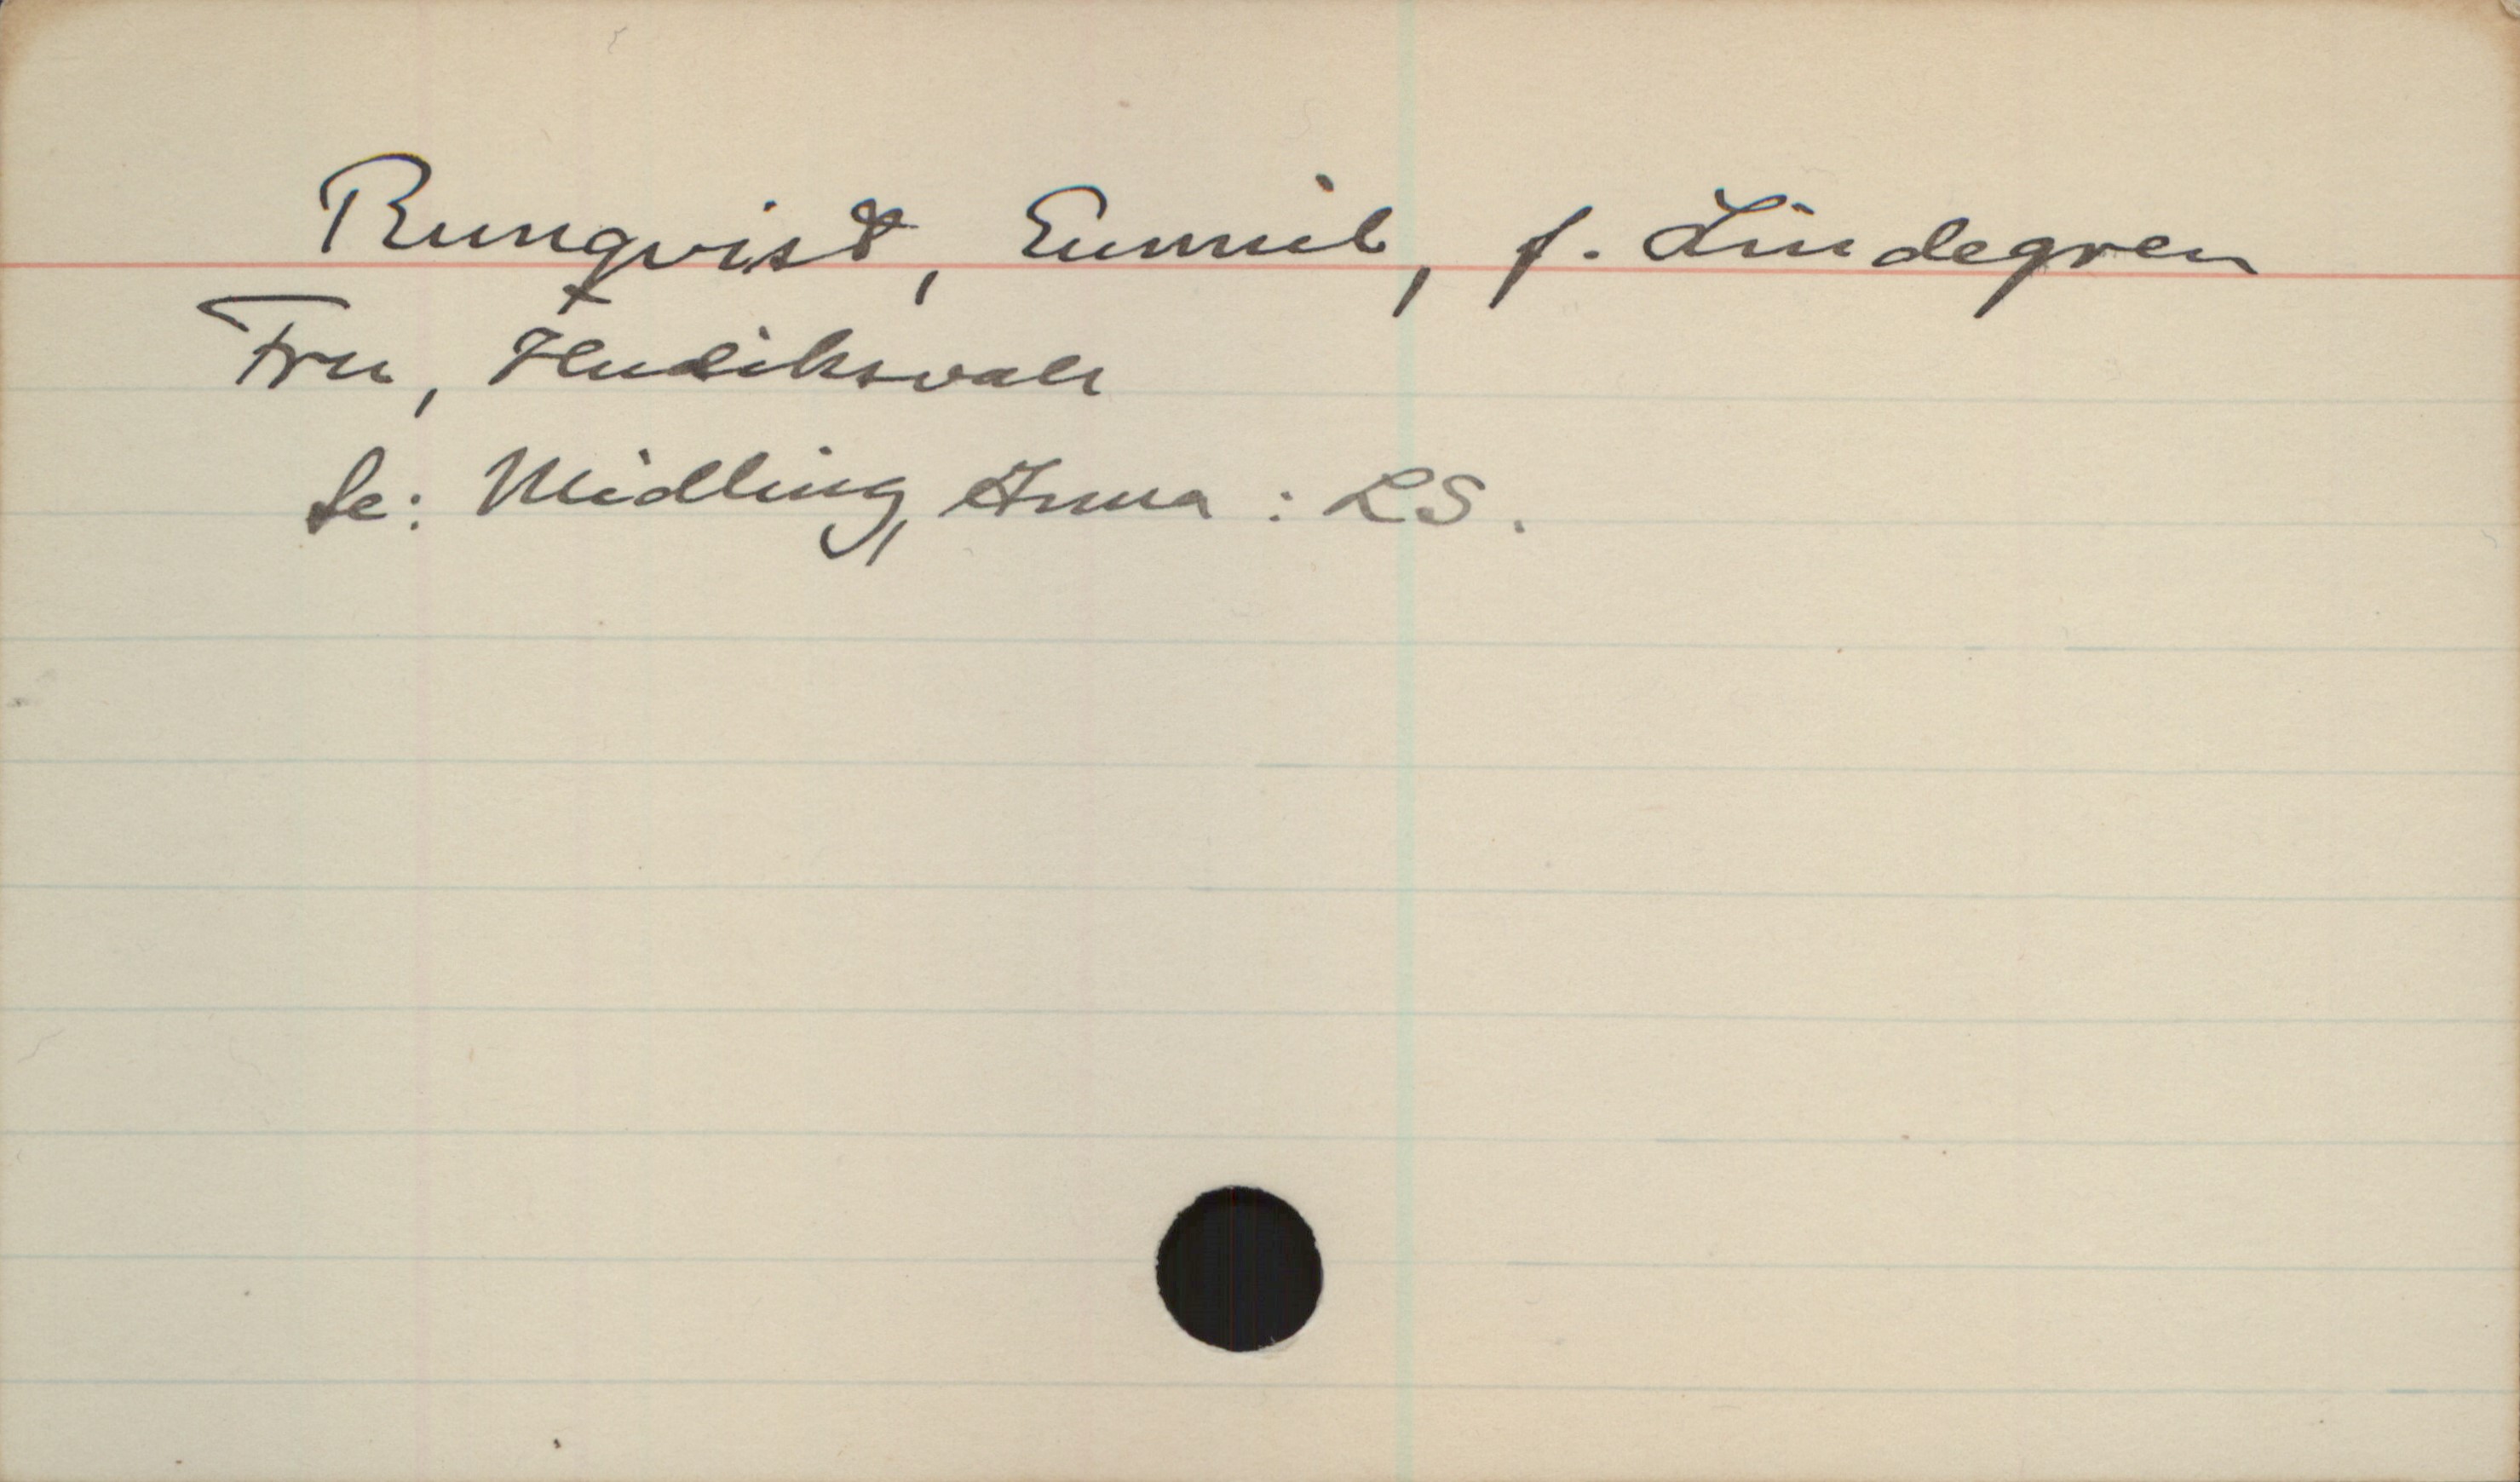 Runqvist, Gunnel, f. Lindegren
Fru, Hudiksvall
Se: Midling, Anna : LS.